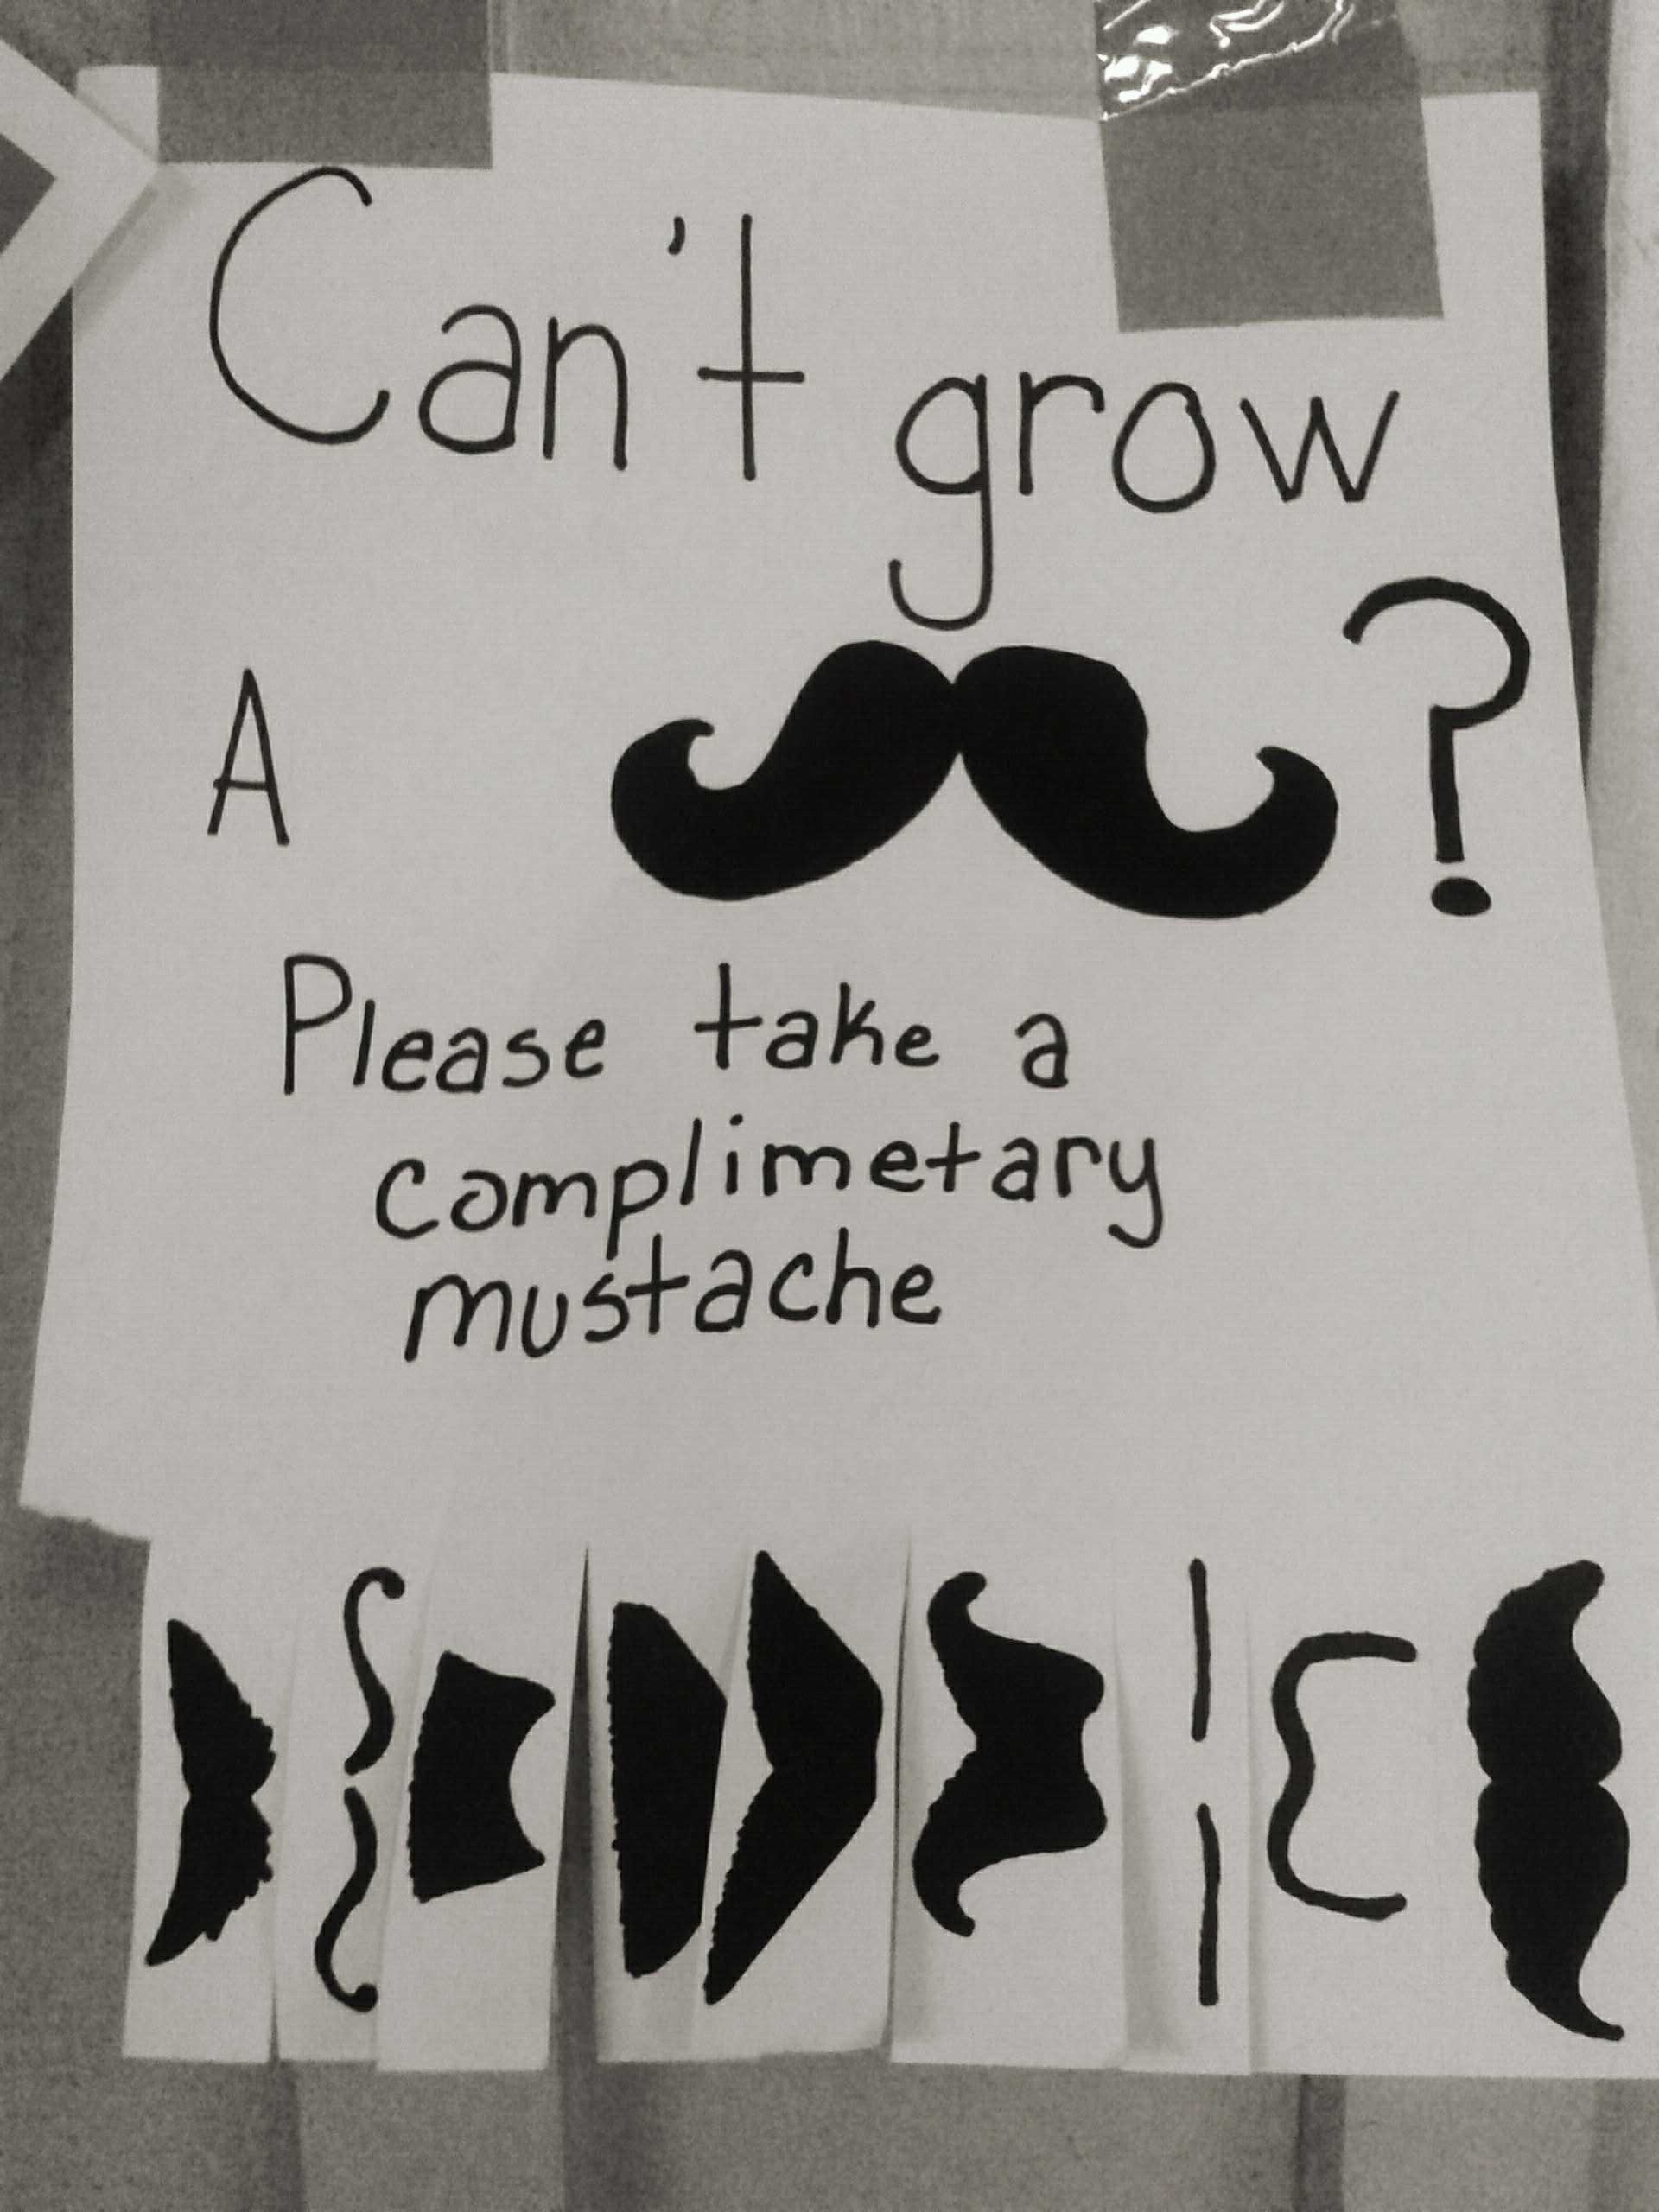 Can't grow
A ?
Please take a
complimetary
mustache